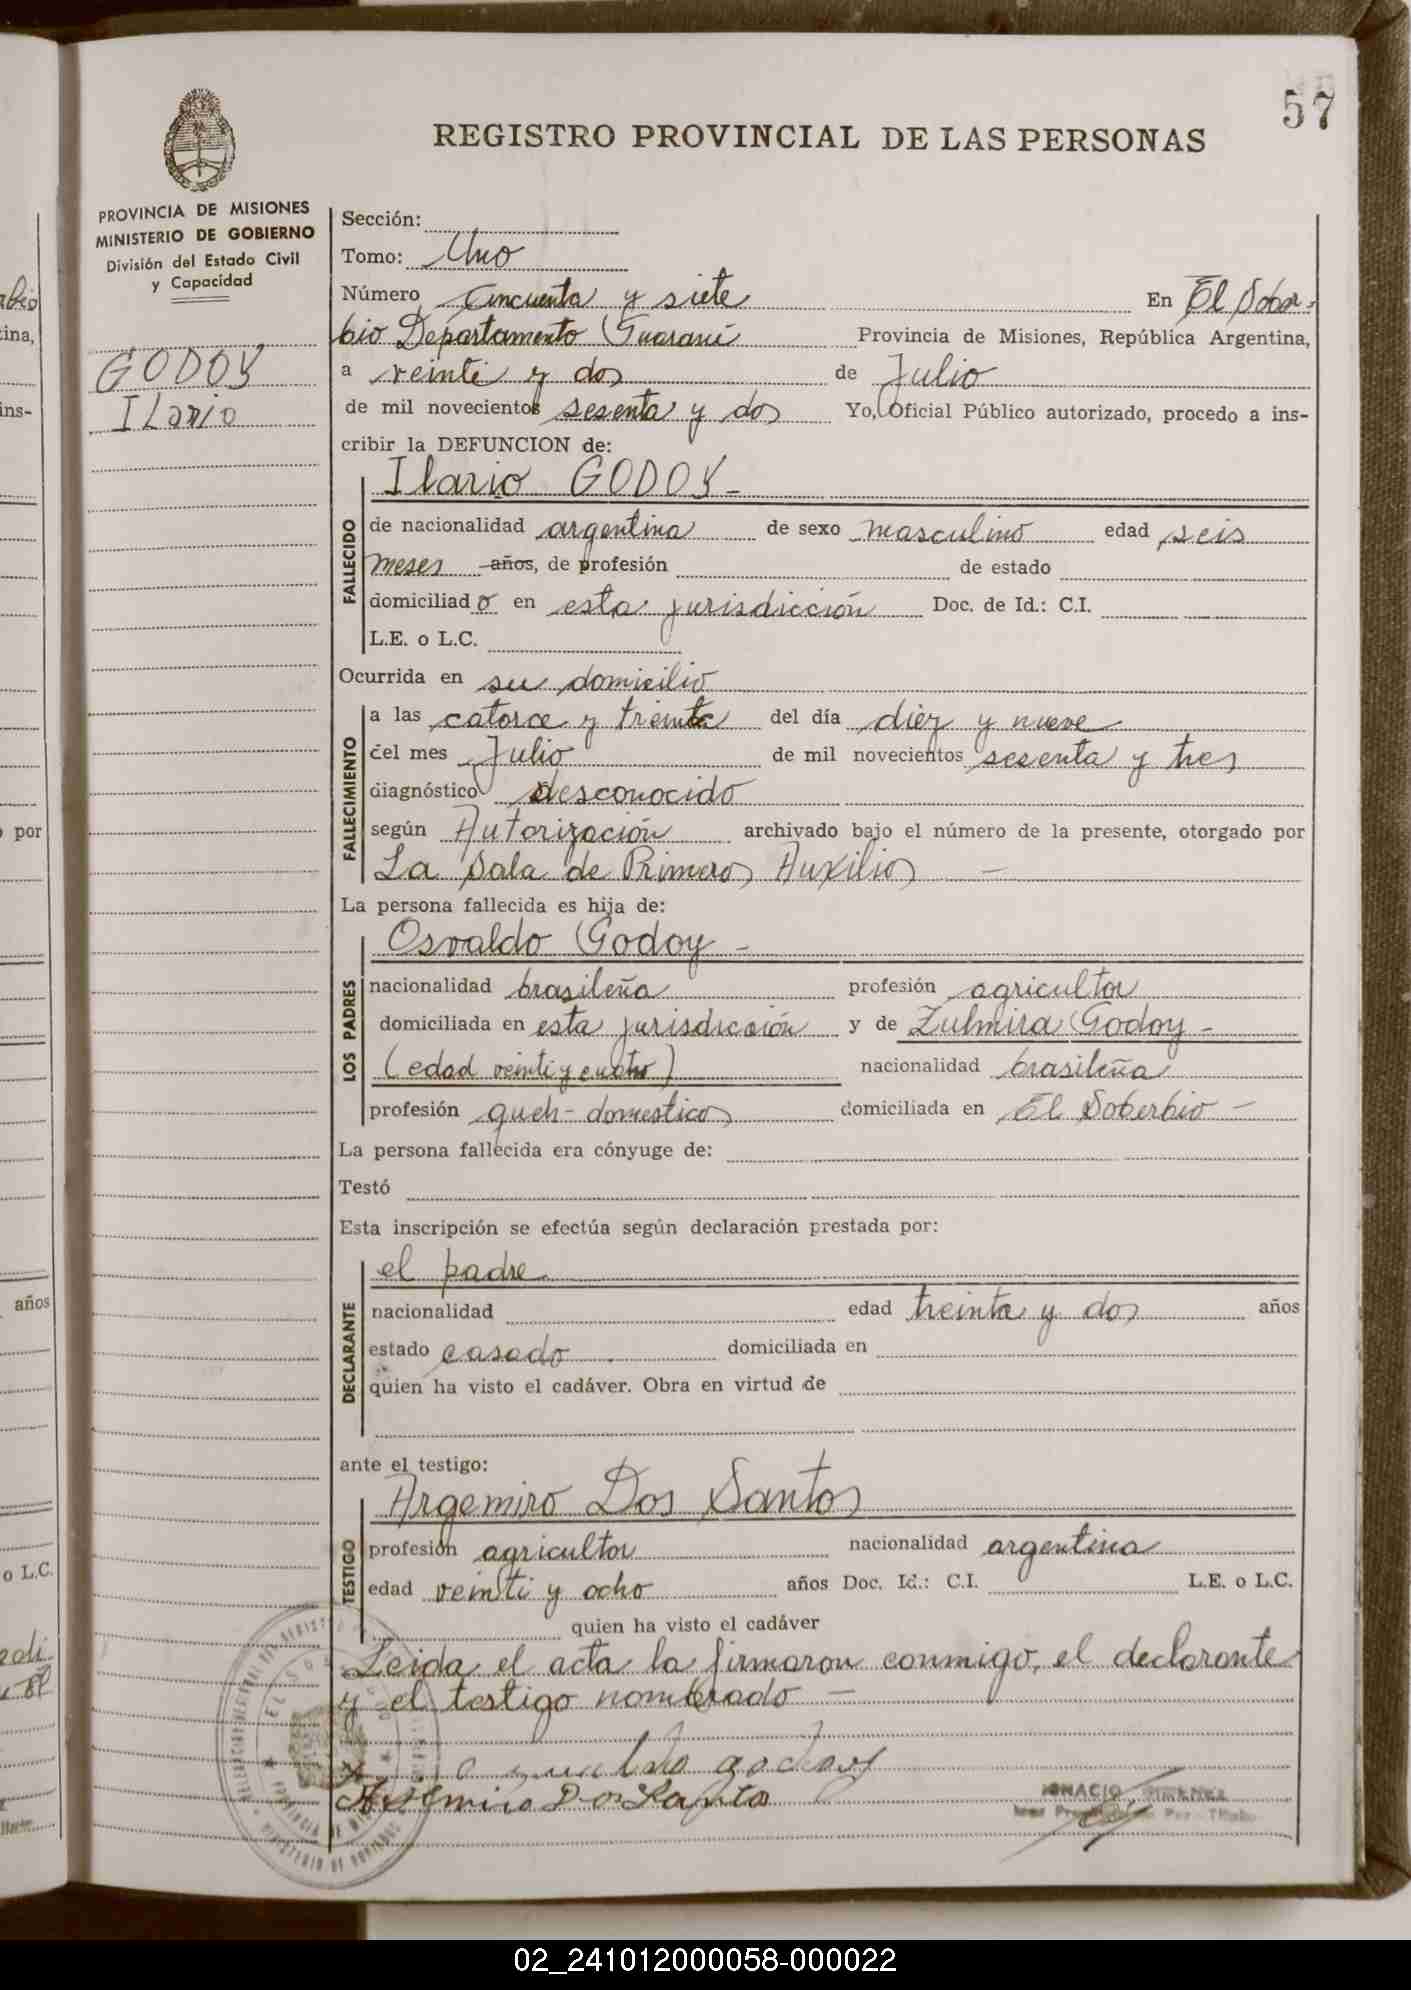 57
REGISTRO PROVINCIAL DE LAS PERSONAS
PROVINCIA DE MISIONES
MINISTERIO DE GOBIERNO
División del Estado Civil
y Capacidad
GODOY
ILario
Sección:
Tomo: Uno
Número Cincuenta y siete En El Sober-
bio Departamento Guaraní Provincia de Misiones, República Argentina,
a veinti y dos de Julio
de mil novecientos sesenta y dos Yo, Oficial Público autorizado, procedo a ins-
cribir la DEFUNCION de:
Ilario GODOY -
FALLECIDO
de nacionalidad argentina de sexo masculino edad seis
meses años, de profesión de estado
domiciliado en esta jurisdicción Doc. de Id.: C.I.
L.E. o L.C.
Ocurrida en su domicilio
FALLECIMIENTO
a las catorce y treinta del día diez y nueve
del mes Julio de mil novecientos sesenta y tres
diagnóstico desconocido
según Autorización archivado bajo el número de la presente, otorgado por
La Sala de Primeros Auxilios —
La persona fallecida es hija de:
LOS PADRES
Osvaldo Godoy -
nacionalidad brasileña profesión agricultor
domiciliada en esta jurisdicción y de Zulmira Godoy -
(edad veinti y cuatro) nacionalidad brasileña
profesión queh-domesticos domiciliada en El Soberbio —
La persona fallecida era cónyuge de:
Testó
Esta inscripción se efectúa según declaración prestada por:
DECLARANTE
el padre
nacionalidad edad treinta y dos años
estado casado domiciliada en
quien ha visto el cadáver. Obra en virtud de
ante el testigo:
TESTIGO
Argemiro Dos Santos
profesión agricultor nacionalidad argentina
edad veinti y ocho años Doc. Id.: C.I. L.E. o L.C.
quien ha visto el cadáver
Leida el acta la firmaron conmigo, el declarante
y el testigo nombrado —
godoy
Dos Santos
IGNACIO
ina,
ins-
por
años
o L.C.
02_241012000058-000022